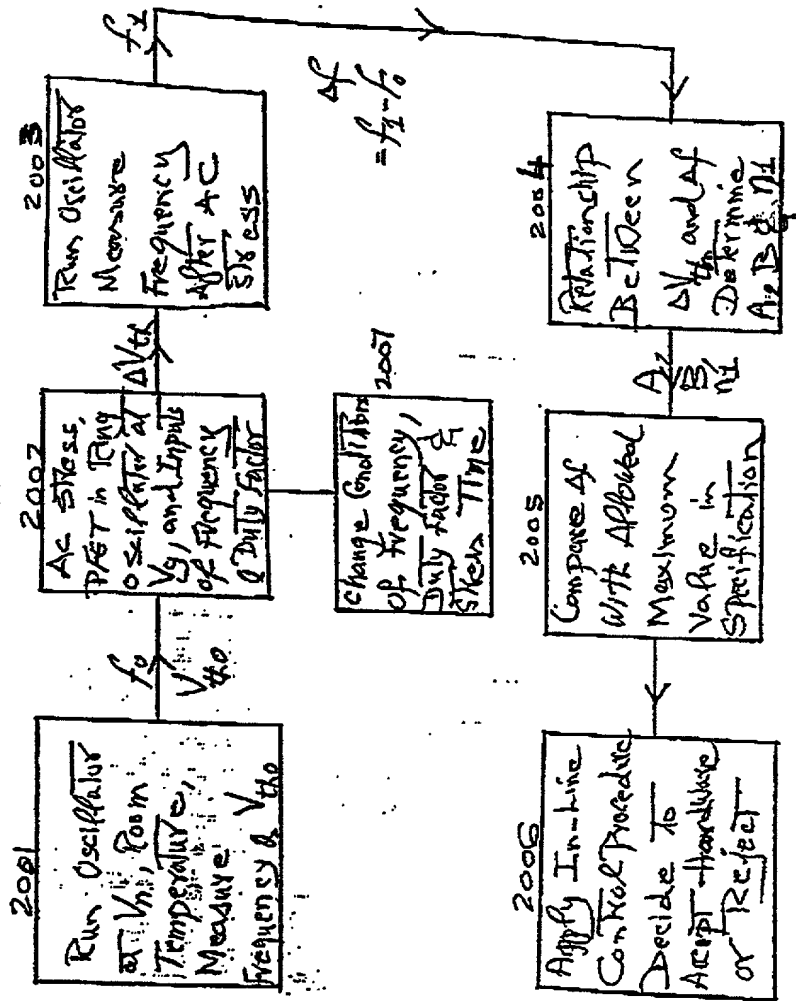 2001
Run Oscillator
at Vn, Room
Temperature,
Measure
Frequency & Vtho
fo
Vtho
2002
AC Stress,
PFET in Ring
Oscillator at
Vg, and Inputs
of Frequency
& Duty Factor
ΔVth
2003
Run Oscillator
Measure
Frequency
After AC
Stress
f1
2007
Change Condition
of Frequency,
Duty Factor &
Stress Time
Δf
=f1-fo
2004
Relationship
Between
ΔVth and Δf
Determine
A, B & n1
A,
B,
n1
2005
Compare Δf
With Allowed
Maximum
Value in
Specification
2006
Apply In-Line
Control Procedure
Decide To
Accept Hardware
or Reject